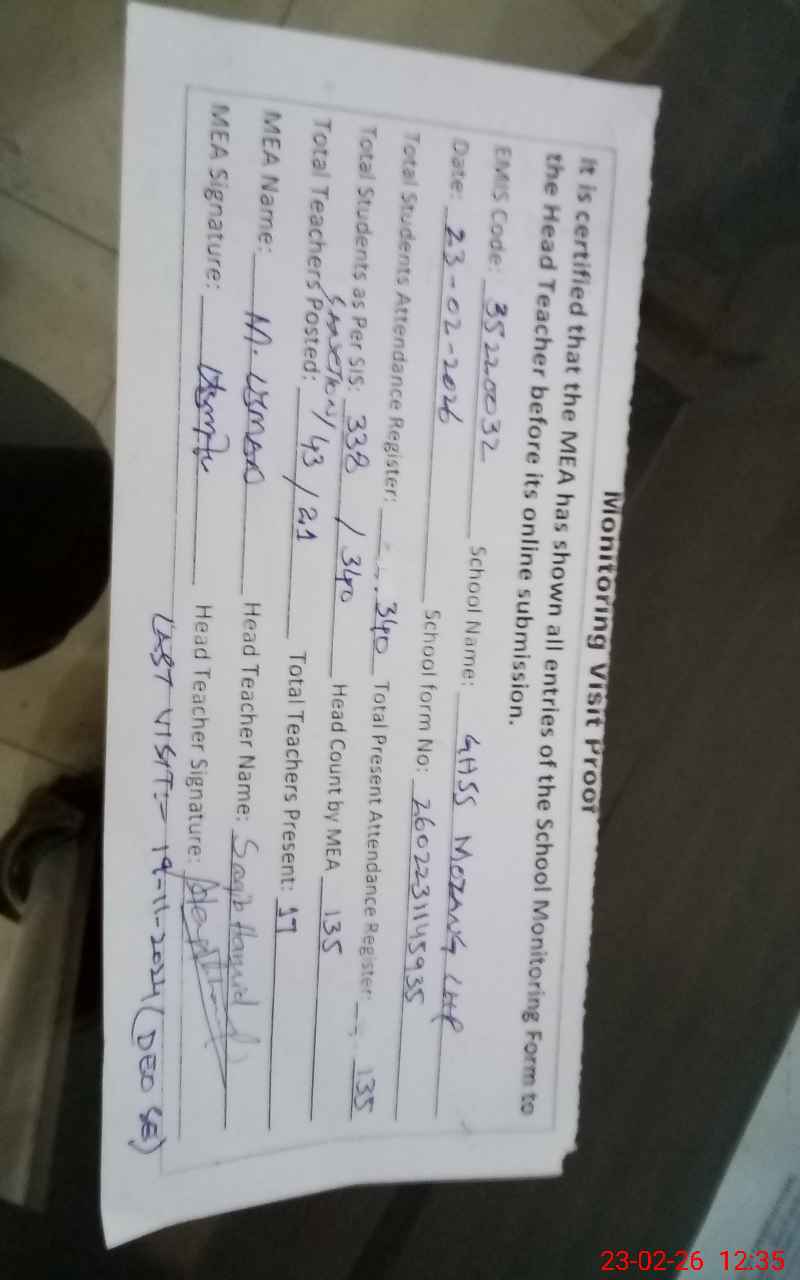 Monitoring Visit Proof
It is certified that the MEA has shown all entries of the School Monitoring Form to
the Head Teacher before its online submission.
EMIS Code: 35220032 School Name: GHSS MOZANG LHR
Date: 23-02-2026 School form No: 260223114S935
Total Students Attendance Register: 340 Total Present Attendance Register: 135
Total Students as Per SIS: 338 / 340 Head Count by MEA 135
SANCTION/
Total Teachers Posted: 43 / 21 Total Teachers Present: 17
MEA Name: M. USMAN Head Teacher Name: Hamid
MEA Signature: Head Teacher Signature:
LAST VISIT:- 19-11-2024 (DEO SE)
23-02-26 12:35